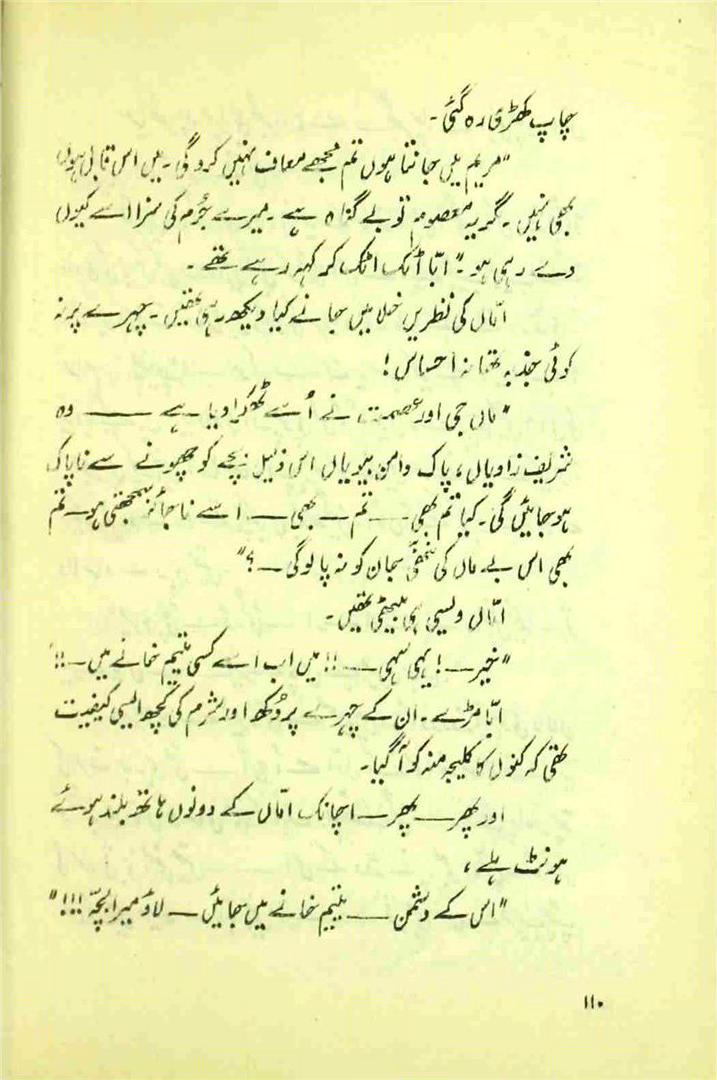 چاپ کھڑی رہ گئی۔
"مریم میں جانتا ہوں تم مجھے معاف نہیں کرو گی۔ میں اس قابل ہوں
بھی نہیں۔ مگر یہ معصوم تو بے گناہ ہے۔ میرے جُرم کی سزا اسے کیوں
دے رہی ہو۔" ابّا اٹک اٹک کر کہہ رہے تھے۔
امّاں کی نظریں خلا میں جانے کیا دیکھ رہی تھیں۔ چہرے پر نہ
کوئی جذبہ تھا نہ احساس!
"ماں جی اور عصمت نے اُسے ٹھکرا دیا ہے ـــــ وہ
شریف زادیاں، پاک دامن بیویاں اس ذلیل بچے کو چھونے سے ناپاک
ہو جائیں گی۔ کیا تم بھی ــــ تم ــ بھی ــــ اسے ناجائز سمجھتی ہو ــ تم
بھی اس بے ماں کی ننھی سی جان کو نہ پالو گی ــ؟"
امّاں ویسی ہی بیٹھی تھیں۔
"خیر ــ! یہی سہی ــــ!! میں اب اسے کسی یتیم خانے میں ــ!!"
ابّا مڑے۔ ان کے چہرے پر دُکھ اور شرم کی کچھ ایسی کیفیت
تھی کہ کنول کا کلیجہ منہ کو آ گیا۔
اور پھر ــــ پھر ــ اچانک امّاں کے دونوں ہاتھ بلند ہوئے
ہونٹ ہلے،
"اس کے دشمن ــــ یتیم خانے میں جائیں ــ لاؤ میرا بچّہ!!!"
۱۱۰